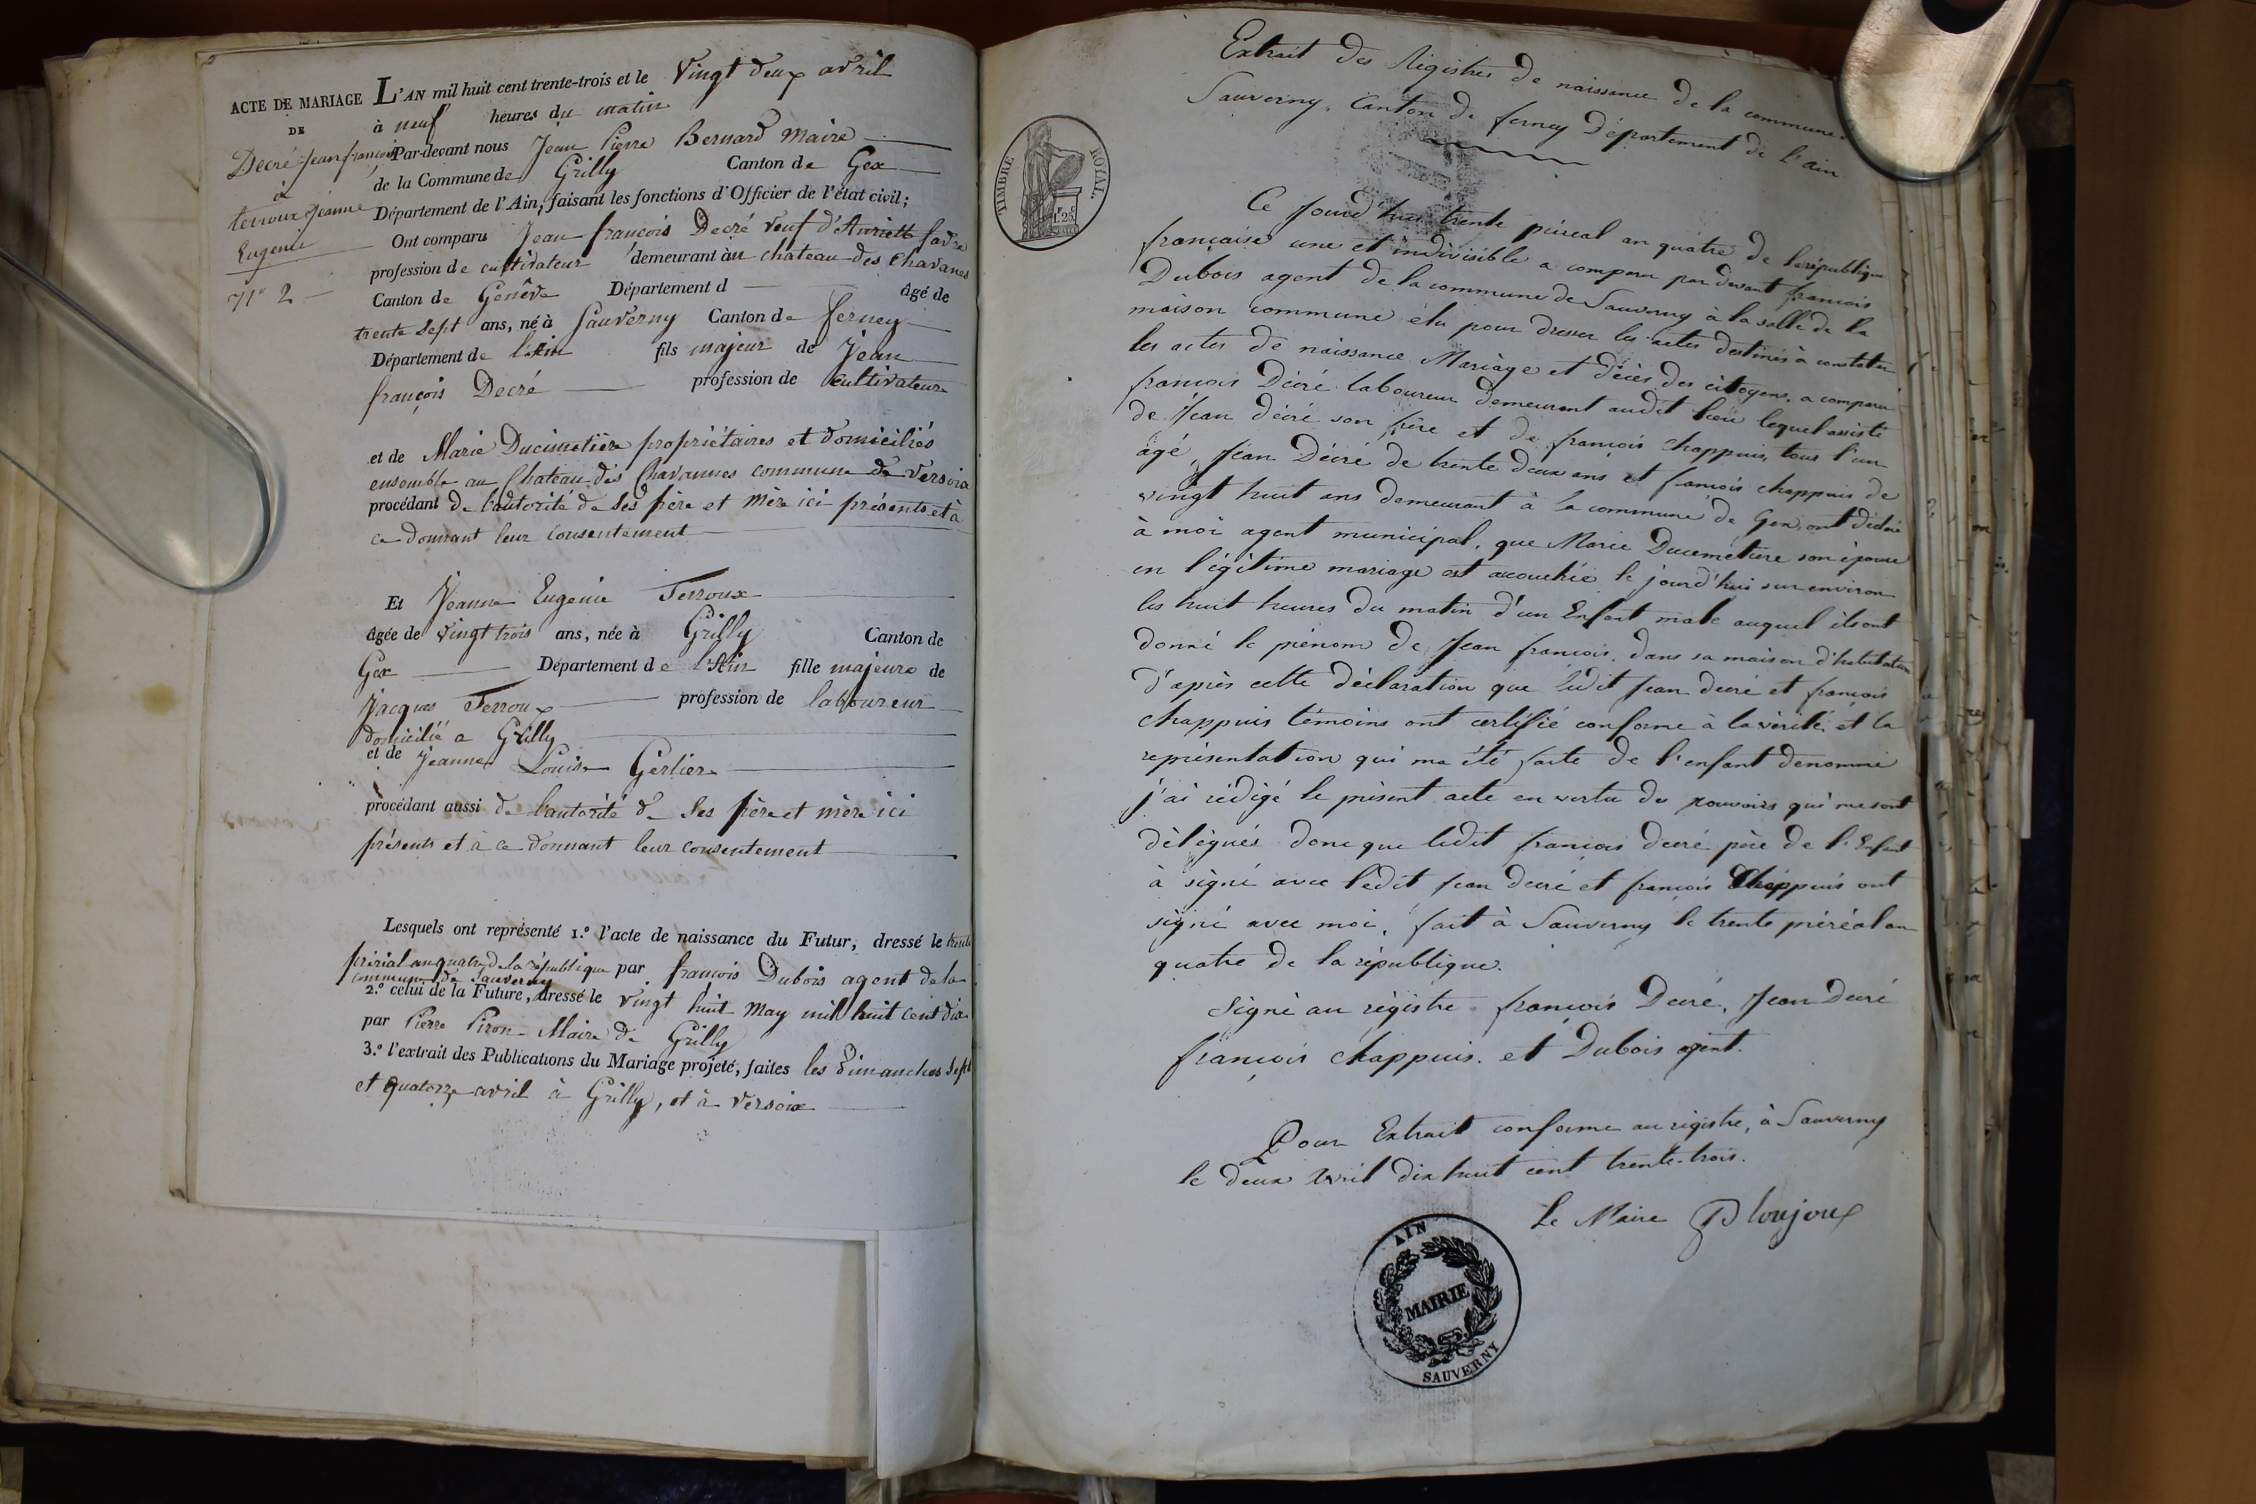 ACTE DE MARIAGE
DE
Decré Jean françois
à
terroux Jeanne
Eugenie
n° 2
L'AN mil huit cent trente-trois et le Vingt deux avril
à neuf heures du matin
Par-devant nous Jean Pierre Bernard Maire
de la Commune de Grilly Canton de Gex
Département de l'Ain, faisant les fonctions d'Officier de l'état civil;
Ont comparu Jean françois Decré veuf d'
profession de cultivateur demeurant au chateau des Chavanes
Canton de Genêve Département d âgé de
trente sept ans, né à Sauverny Canton de ferney
Département de l'Ain fils majeur de Jean
françois Decré profession de cultivateur
et de Marie Ducimetière propriétaires et domiciliés
ensemble au Chateau des Chavannes commune de Versoix
procédant de l'autorité de ses père et mère ici présents et à
ce donnant leur consentement
Et Jeanne Eugenie Terroux
âgée de vingt trois ans, née à Grilly Canton de
Gex Département de l'Ain fille majeure de
Jacques Terroux profession de laboureur
domicilié a Grilly
et de Jeanne Louise Gerlier
procédant aussi de l'autorité de ses père et mère ici
présents et à ce donnant leur consentement
Lesquels ont représenté 1.° l'acte de naissance du Futur, dressé le trente
prérial an quatre de la république par françois Dubois agent de la
commune de Sauverny
2.° celui de la Future, dressé le vingt huit May mil huit cent dix
par Pierre Piron Maire de Grilly
3.° l'extrait des Publications du Mariage projeté, faites les dimanches sept
et quatorze avril à Grilly, et à Versoix
TIMBRE ROYAL.
Extrait des Régistres de naissance de la commune de
Sauverny, Canton de ferney Département de l'ain
Ce Jourd'hui trente péireal an quatre de la république
française une et indivisible a comparu par devant françois
Dubois agent de la commune de Sauverny à la salle de la
maison commune élu pour dresser les actes destinés à constater
les actes de naissance Mariage et décès des citoyens, a comparu
françois Décré laboureur demeurant audit lieu lequel assisté
de Jean décré son frère et de françois Chappuis, tous l'un
âgé, Jean Décré de trente deux ans et françois chappuis de
vingt huit ans demeurant à la commune de Gex, ont déclaré
à moi agent municipal, que Marie Ducimetiere son épouse
en légitime mariage est accouchée le jourd'hui sur environ
les huit heures du matin d'un Enfant male auquel ils ont
donné le prénom de Jean françois, dans sa maison d'habitation
d'après cette déclaration que ledit Jean decré et françois
Chappuis témoins ont certifié conforme à la vérité et la
représentation qui ma été faite de l'enfant dénommé
j'ai rédigé le présent acte en vertu des pouvoirs qui me sont
délégués donc que ledit françois decré père de l'Enfant
à signé avec ledit Jean decré et françois Chappuis ont
signé avec moi, fait à Sauverny le trente préréal an
quatre de la république.
Signé au régistre françois Decré, Jean Decré
françois chappuis. et Dubois agent.
Pour Extrait conforme au régistre, à Sauverny
le deux Avril dix huit cent trente-trois.
Le Maire Ploujoux
AIN
MAIRIE
SAUVERNY